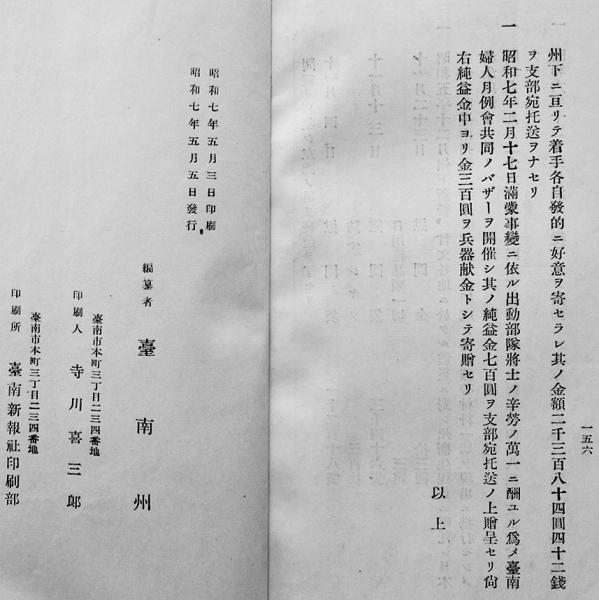 州下ニ亘リテ着手各自發的ニ好意ヲ寄セラレ其ノ金額二千三百八十四圓四十二錢
ヲ支部宛托送ヲナセリ
一 昭和七年二月十七日滿蒙事變ニ依ル出動部隊將士ノ辛勞ノ萬一ニ酬ユル爲メ臺南
婦人月例會共同ノバザーヲ開催シ其ノ純益金七百圓ヲ支部宛托送ノ上贈呈セリ尙
右純益金中ヨリ金三百圓ヲ兵器献金トシテ寄贈セリ
以上
一五六
昭和七年五月三日印刷
昭和七年五月五日發行
編纂者 臺南州
臺南市本町三丁目二三四番地
印刷人 寺川喜三郎
臺南市本町三丁目二三四番地
印刷所 臺南新報社印刷部